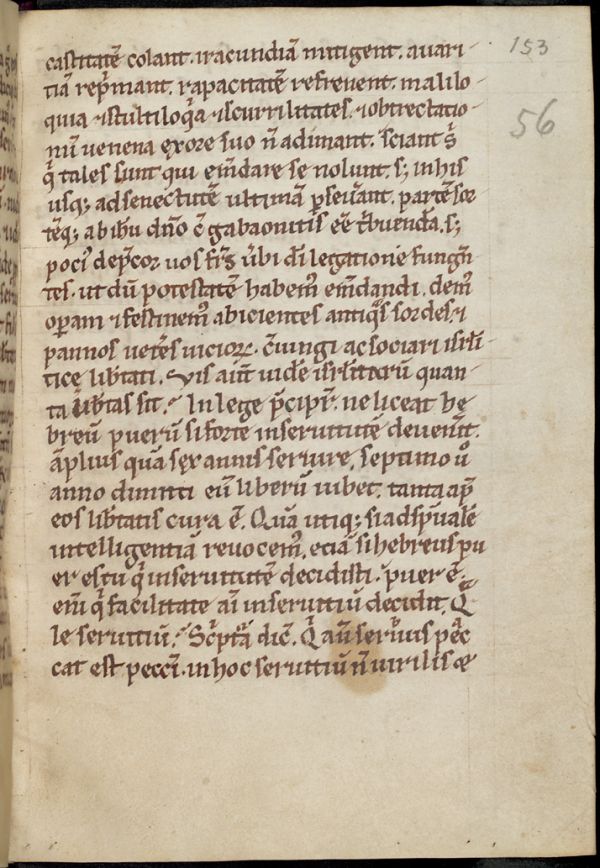 castitatē colant. iracundiā mitigent. auari-
tiā rep̄mant. rapacitatē refrenent. malilo-
quia ⁊ stultiloq̄a ⁊ scurrilitates. ⁊ obtrectatio-
nū uenena ex ore suo n̄ adimant. sciant q̄ s̄
q̄ tales sunt qui em̄dare se nolunt. s; in his
usq; ad senectutē ultimā p̱seuerant. partē sor
tēq; ab ih̄u dn̄o c̄ gabaonitis ēē t̄buendā. s;
poci᷒ dep̄cor uos fr̄s ubi dī legatione fungn̄
tes. ut dū potestatē habem᷒ em̄dandi. dem᷒
op̱am ⁊ festinem᷒ abicientes antiq̄s sordes ⁊
pannos uet̄es uicioꝝ. c̄iungi ac sociari isrl̄i-
tice lib̄tati. Vis aūt uidē isrl̄itarū quan-
ta lib̄tas sit. In lege p̄cipit̄. ne liceat he
breū puerū si forte in seruitutē deuen̄it.
āplius quā sex annis seruire. septimo ū
anno dimitti eū liberū iubet. tanta ap̄
eos lib̄tatis cura ē. Quā utiq; si ad sp̄ualē
intelligentiā reuocem᷒. etiā si hebreus pu
er es tu q̄ in seruitutē decidisti. puer ē.
em̄ q̄ facilitate aī in seruitiū decidit. Q̄
le seruitiū. Sc̄pt̄a dic̄. Q̄ aūt seruus pec̄
cat est pecc̄i. in hoc seruitiū n̄ uirilis æ
153
56